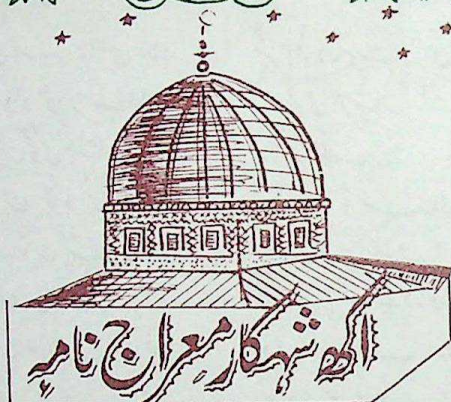 اکھ شہکار معراج نامہٕ